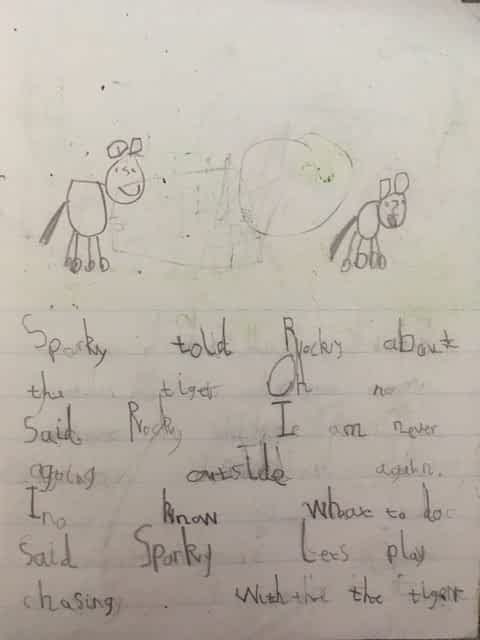 Sparky told Rrocky about
the tiger Oh no
Said Rrocky I am never
agoing outside again.
I no know what to do
Said Sparky Lets play
chasing with the the tiger